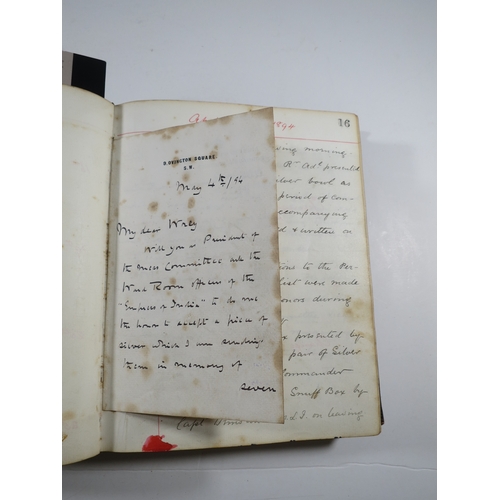 16
1894
9. OVINGTON SQUARE
S.W.
May 4th/94
My dear Wrey
Will you as President of
the Mess Committee ask the
Ward Room officers of the
"Empress of India" to do me
the honor to accept a piece of
silver which I am sending
them in memory of
seven
morning
presented
bowl as
accompanying
& written on
to the
were made
during
presented by
pair of Silver
Commander
Snuff Box by
Capt
on leaving